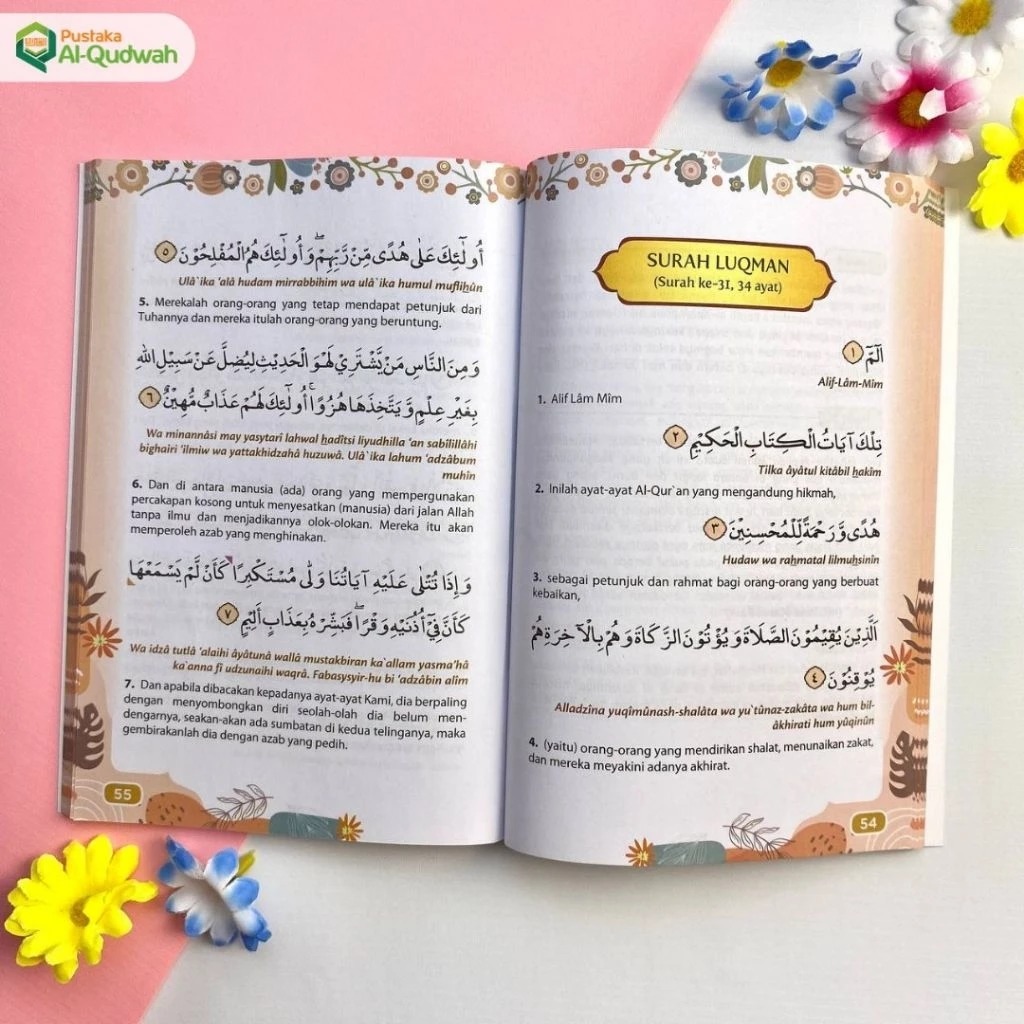 Pustaka
Al-Qudwah
SURAH LUQMAN
(Surah ke-31, 34 ayat)
الٓمّٓ ۝١
Alif-Lâm-Mîm
1. Alif Lâm Mîm
تِلْكَ آيَاتُ الْكِتَابِ الْحَكِيْمِ ۝٢
Tilka âyâtul kitâbil hakîm
2. Inilah ayat-ayat Al-Qur`an yang mengandung hikmah,
هُدًى وَّرَحْمَةً لِّلْمُحْسِنِيْنَ ۝٣
Hudaw wa rahmatal lilmuhsinîn
3. sebagai petunjuk dan rahmat bagi orang-orang yang berbuat
kebaikan,
الَّذِيْنَ يُقِيْمُوْنَ الصَّلَاةَ وَيُؤْتُوْنَ الزَّكَاةَ وَهُمْ بِالْآخِرَةِ هُمْ
يُوْقِنُوْنَ ۝٤
Alladzîna yuqîmûnash-shalâta wa yu`tûnaz-zakâta wa hum bil-
âkhirati hum yûqinûn
4. (yaitu) orang-orang yang mendirikan shalat, menunaikan zakat,
dan mereka meyakini adanya akhirat.
54
أُولٰٓئِكَ عَلٰى هُدًى مِّنْ رَّبِّهِمْ ۖ وَأُولٰٓئِكَ هُمُ الْمُفْلِحُوْنَ ۝٥
Ulâ`ika 'alâ hudam mirrabbihim wa ulâ`ika humul muflihûn
5. Merekalah orang-orang yang tetap mendapat petunjuk dari
Tuhannya dan mereka itulah orang-orang yang beruntung.
وَمِنَ النَّاسِ مَنْ يَّشْتَرِيْ لَهْوَ الْحَدِيْثِ لِيُضِلَّ عَنْ سَبِيْلِ اللّٰهِ
بِغَيْرِ عِلْمٍ وَّيَتَّخِذَهَا هُزُوًا ۚ أُولٰٓئِكَ لَهُمْ عَذَابٌ مُّهِيْنٌ ۝٦
Wa minannâsi may yasytarî lahwal hadîtsi liyudhilla 'an sabîlillâhi
bighairi 'ilmiw wa yattakhidzahâ huzuwâ. Ulâ`ika lahum 'adzâbum
muhîn
6. Dan di antara manusia (ada) orang yang mempergunakan
percakapan kosong untuk menyesatkan (manusia) dari jalan Allah
tanpa ilmu dan menjadikannya olok-olokan. Mereka itu akan
memperoleh azab yang menghinakan.
وَإِذَا تُتْلٰى عَلَيْهِ آيَاتُنَا وَلّٰى مُسْتَكْبِرًا كَأَنْ لَّمْ يَسْمَعْهَا
كَأَنَّ فِيْٓ أُذُنَيْهِ وَقْرًا ۖ فَبَشِّرْهُ بِعَذَابٍ أَلِيْمٍ ۝٧
Wa idzâ tutlâ 'alaihi âyâtunâ wallâ mustakbiran ka`allam yasma'hâ
ka`anna fî udzunaihi waqrâ. Fabasysyir-hu bi 'adzâbin alîm
7. Dan apabila dibacakan kepadanya ayat-ayat Kami, dia berpaling
dengan menyombongkan diri seolah-olah dia belum men-
dengarnya, seakan-akan ada sumbatan di kedua telinganya, maka
gembirakanlah dia dengan azab yang pedih.
55